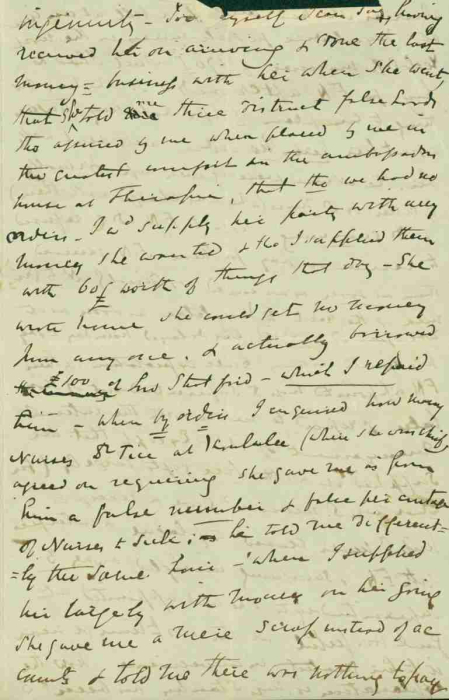 ingenuity - For myself I can say, having
received her on arriving & done the last
money = business with her when she went,
that she told me three distinct falsehoods
tho' assured by me when placed by me in
the greatest comfort in the ambassadors
house at Therapia, that tho we had no
orders - I wd supply her party with any
money she wanted & tho I supplied them
with 60£ worth of things that day - She
wrote home she could get no money
from any one. & actually borrowed
£100 of Lord Stratford - which I repaid
him - when by orders I enquired how many
Nurses &c at (when she was
agreed on requiring she gave me as from
him a false number & false per centage
of Nurses to Sick; he told me different-
=ly the same hour - when I supplied
her largely with money on her going
She gave me a mere scrap instead of ac
counts & told me there was nothing to pay